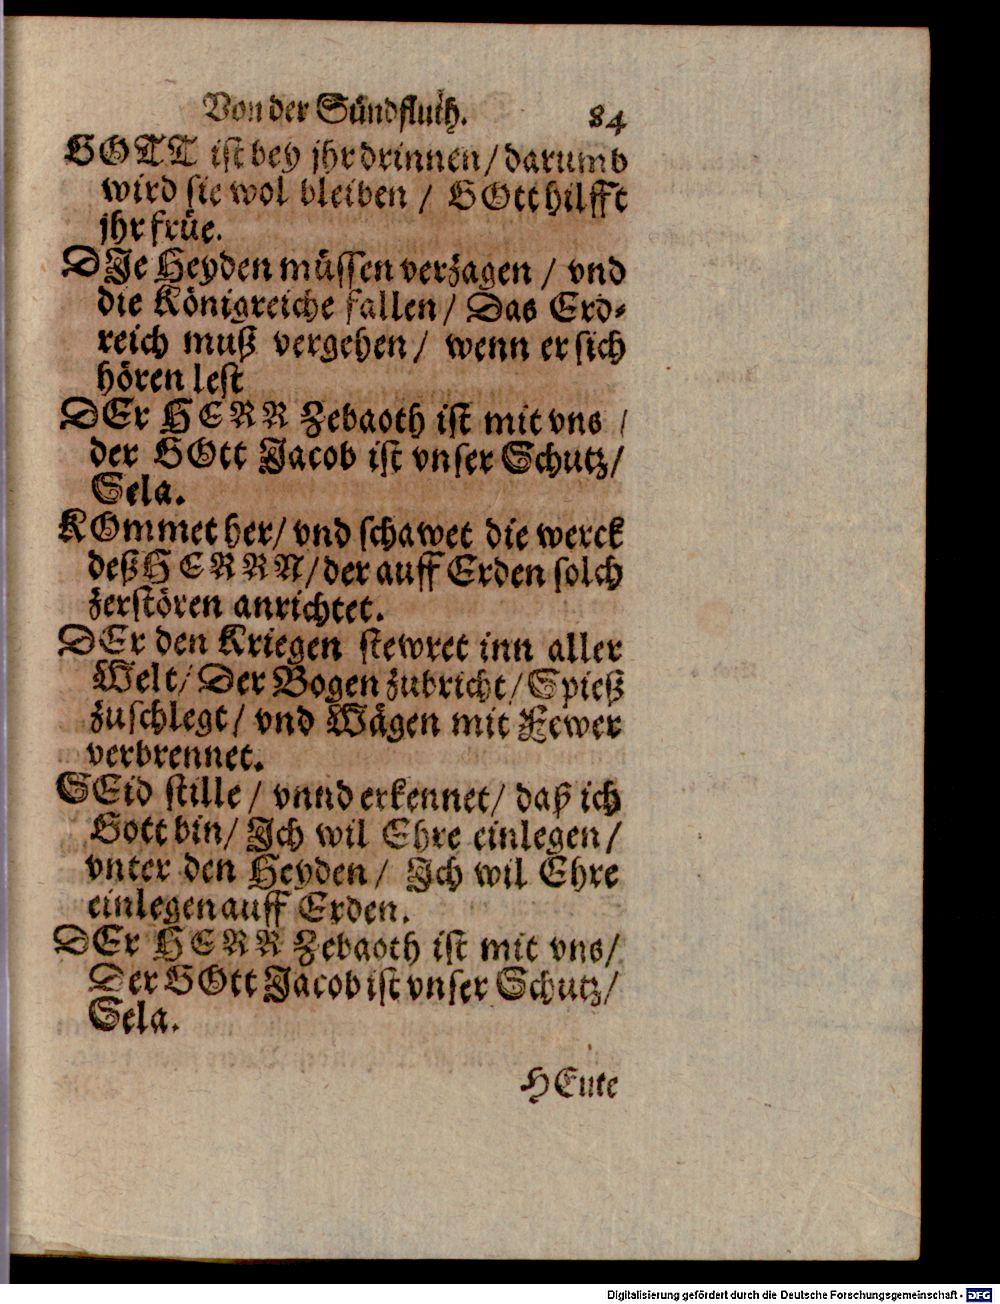 Von der Sündfluth. 84
GOTT ist bey jhr drinnen / darumb
wird sie wol bleiben / GOtt hilfft
jhr früe.
DIe Heyden müssen verzagen / vnd
die Königreiche fallen / Das Erd-
reich muß vergehen / wenn er sich
hören lest
DEr HERR Zebaoth ist mit vns /
der GOtt Jacob ist vnser Schutz /
Sela.
KOmmet her / vnd schawet die werck
deß HERRN / der auff Erden solch
zerstören anrichtet.
DEr den Kriegen stewret inn aller
Welt / Der Bogen zubricht / Spieß
zuschlegt / vnd Wägen mit Fewer
verbrennet.
SEid stille / vnnd erkennet / daß ich
Gott bin / Ich wil Ehre einlegen /
vnter den Heyden / Ich wil Ehre
einlegen auff Erden.
DEr HERR Zebaoth ist mit vns /
Der GOtt Jacob ist vnser Schutz /
Sela.
HEute
Digitalisierung gefördert durch die Deutsche Forschungsgemeinschaft - DFG